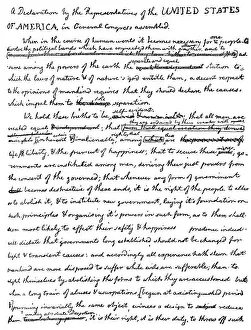 A Declaration by the Representatives of the UNITED STATES
OF AMERICA, in General Congress assembled.
When in the course of human events it becomes necessary for one people to
dissolve the political bands which have connected them with another, and to
-sume among the powers of the earth the separate and equal station to
which the laws of nature & of nature's god entitle them, a decent respect
to the opinions of mankind requires that they should declare the causes
which impel them to the separation.
We hold these truths to be self-evident; that all men are
created equal
that among these are
life, liberty, & the pursuit of happiness; that to secure these rights, go-
-vernments are instituted among men, deriving their just powers from
the consent of the governed; that whenever any form of government
becomes destructive of these ends, it is the right of the people to alter
or to abolish it, & to institute new government, laying it's foundation on
such principles & organising it's powers in such form, as to them shall
seem most likely to effect their safety & happiness. prudence indeed
will dictate that governments long established should not be changed for
light & transient causes: and accordingly all experience hath shewn that
mankind are more disposed to suffer while evils are sufferable, than to
right themselves by abolishing the forms to which they are accustomed. but
when a long train of abuses & usurpations [begun at a distinguished period
& pursuing invariably the same object, evinces a design to reduce
them under absolute Despotism it is their right, it is their duty, to throw off such